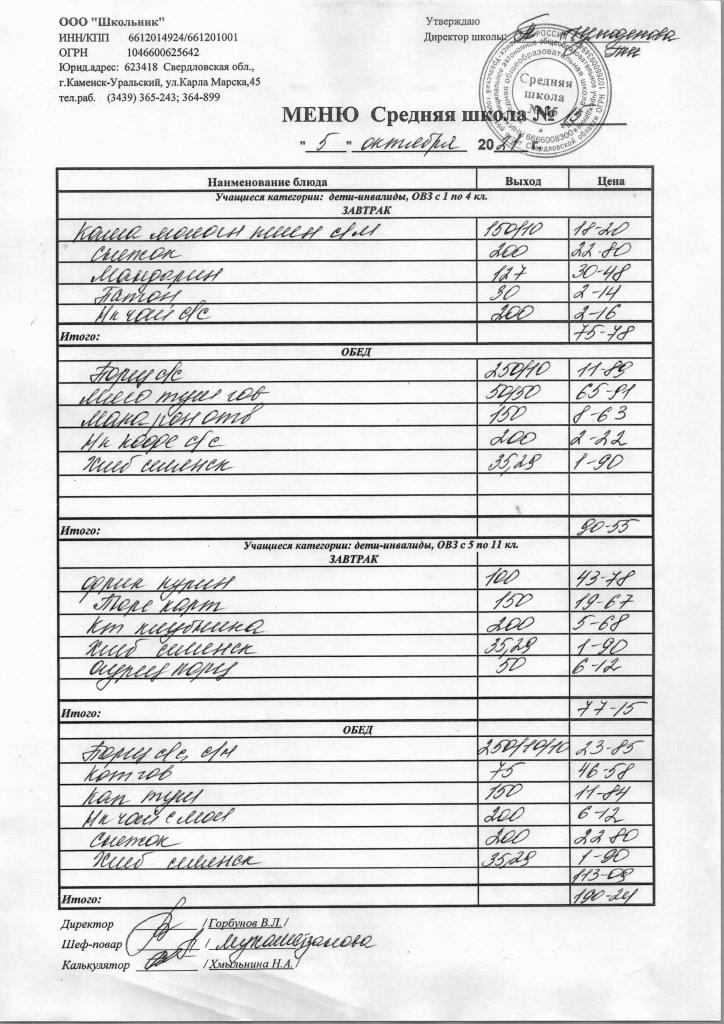 ООО "Школьник"
ИНН/КПП 6612014924/661201001
ОГРН 1046600625642
Юрид.адрес: 623418 Свердловская обл.,
г.Каменск-Уральский, ул.Карла Марска,45
тел.раб. (3439) 365-243; 364-899
Утверждаю
Директор школы:
Средняя
школа
МЕНЮ Средняя школа № 15
" 5 " октября 2021 г.
Наименование блюда Выход Цена
Учащиеся категории: дети-инвалиды, ОВЗ с 1 по 4 кл.
ЗАВТРАК
Каша молочн пшен с/м 150/10 18-20
Снежок 200 22-80
Мандарин 127 30-48
Батон 30 2-14
Нк чай с/с 200 2-16
Итого: 75-78
ОБЕД
Борщ с/с 250/10 11-89
Мясо туш гов 50/50 65-91
Макарон отв 150 8-63
Нк кофе с/с 200 2-22
Хлеб смленск 35,29 1-90
Итого: 90-55
Учащиеся категории: дети-инвалиды, ОВЗ с 5 по 11 кл.
ЗАВТРАК
фрик курин 100 43-78
Пюре карт 150 19-67
Кт клубника 200 5-68
Хлеб смленск 35,29 1-90
Огурец порц 50 6-12
Итого: 77-15
ОБЕД
Борщ с/с, с/м 250/10/10 23-85
Кот гов 75 46-58
Кап туш 150 11-84
Нк чай с мол 200 6-12
Снежок 200 22-80
Хлеб смленск 35,29 1-90
113-09
Итого: 190-24
Директор / Горбунов В.Л. /
Шеф-повар /
Калькулятор / Хмыльнина Н.А. /